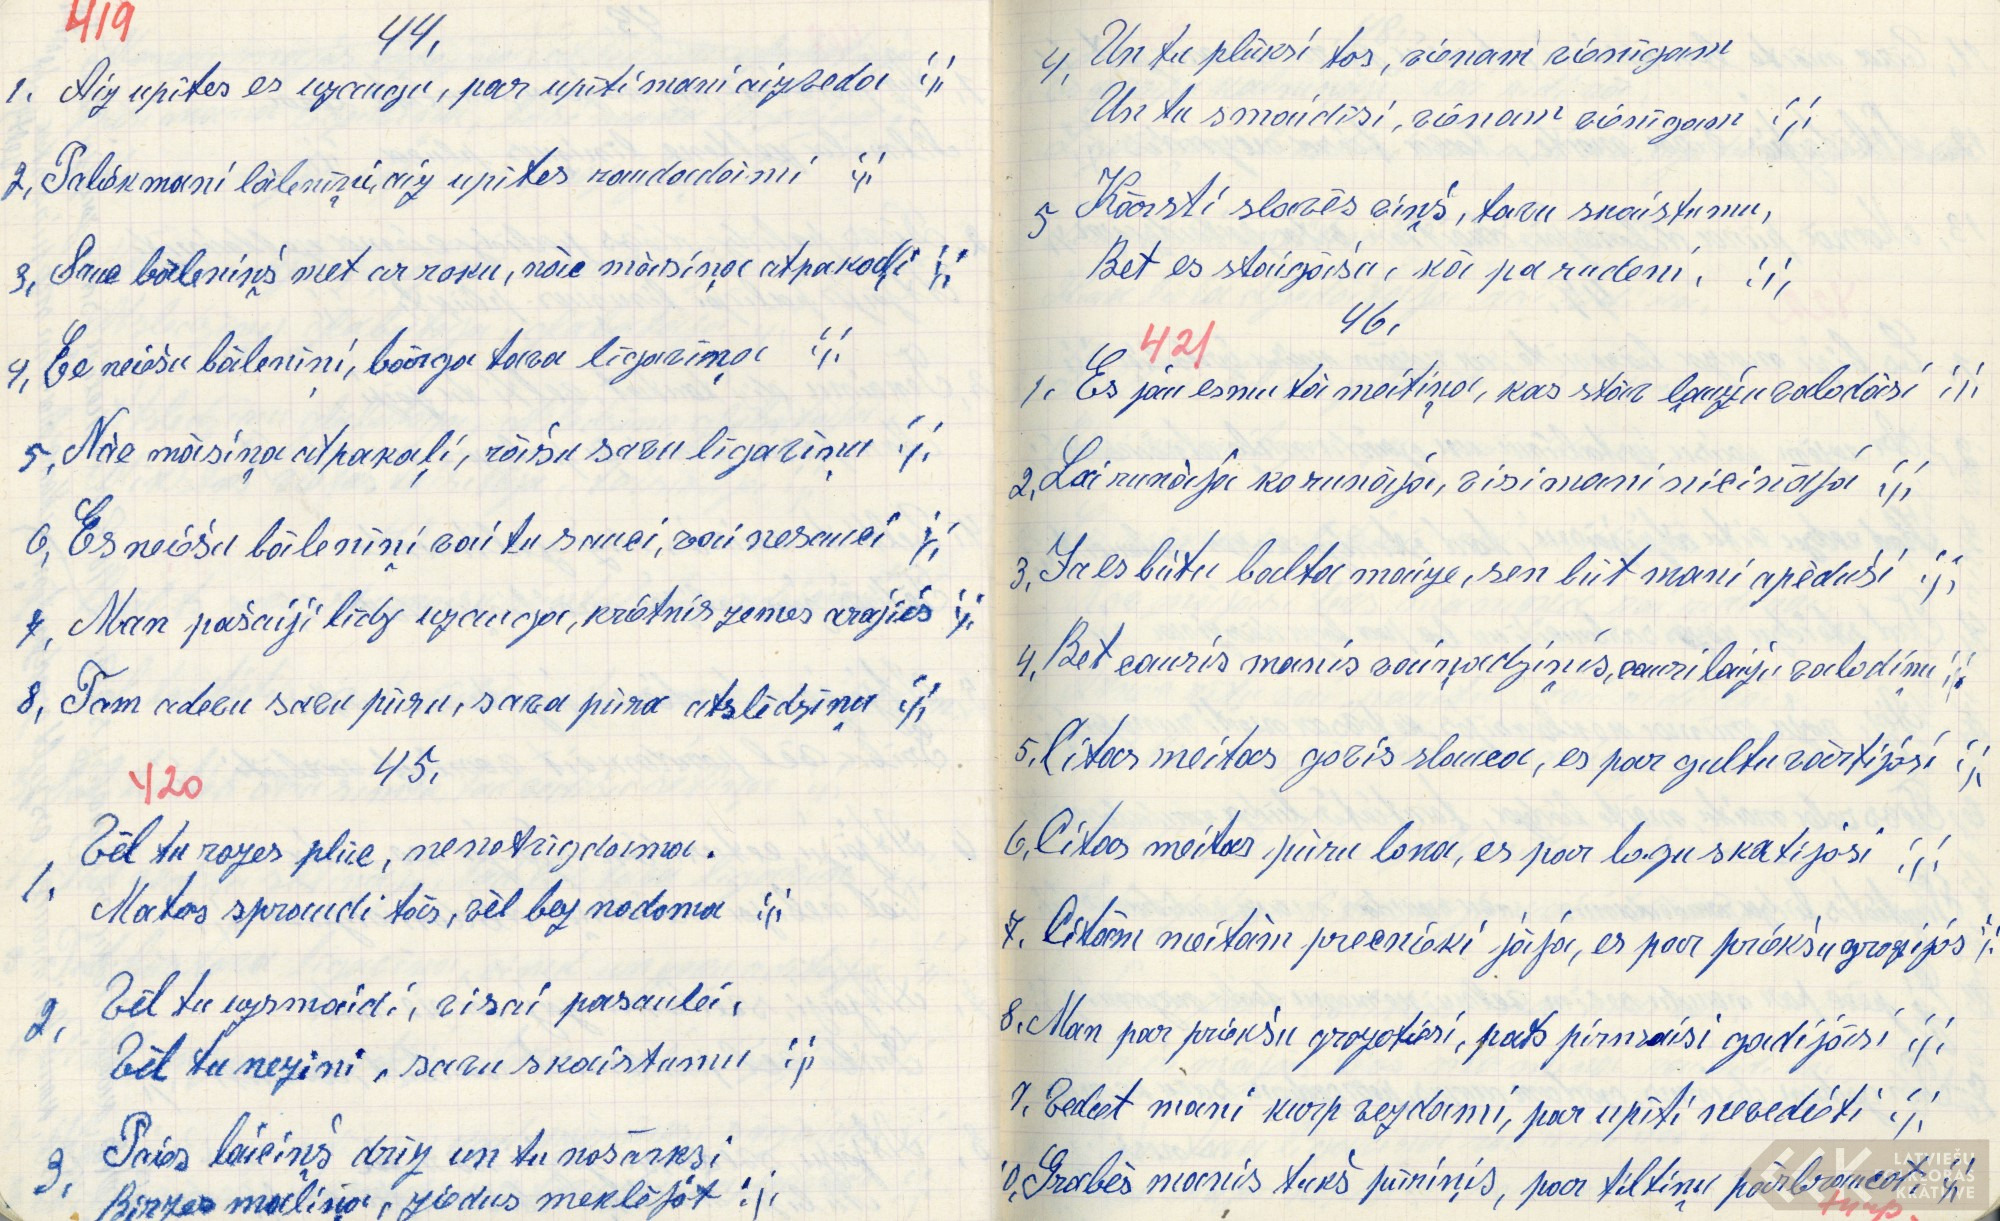 419
44,
1. Aiz upītes es uzaugu, par upīti mani aizveda ;,;
2, Paliek mani bāleniņi, aiz upītes raudadāmi ;,;
3, Sauc bāleniņš met ar roku, nāc māsiņa atpakaļi ;,;
4, Es neiešu bāleniņi, bārga tava līgaviņa ;,;
5, Nāc māsiņa atpakaļi, rāišu savu līgaviņu ;,;
6, Es neiešu bāleniņi vai tu sauci, vai nesauci ;,;
7, Man pašaiji līdz uzauga, krietnis zemes arajiņš ;,;
8, Tam adevu savu pūru, sava pūra atslēdziņu ;,;
45,
420
1, Vēl tu rozes plūc, nenotrīgdama.
Matos spraudi tās, vēl bez nodoma ;,;
2, Vēl tu uzsmaidi, visai pasaulei,
Vēl tu nezini, savu skaistumu ;,;
3, Paies laiciņš drīz un tu nosārksi
Birzes maliņa, ziedus meklējot ;,;
4, Un tu plūksi tos, vienam vienīgam
Un tu smaidīsi, vienam vienīgam ;,;
5 Kārsti slavēs viņš, tavu skaistumu,
Bet es staigāšu, kā pa rudeni, ;,;
46,
421
1. Es jau esmu tā meitiņa, kas stāv ļaužu valodāsi ;,;
2, Lai runāja ko runāja, visi mani nicināja ;,;
3, Ja es būtu balta maize, sen būt mani apēduši ;,;
4, Bet cauris manis vaiņadziņis, cauri laižu valodiņu ;,;
5, Citas meitas govis slauca, es par gultu vārtijosi ;,;
6, Citas meitas pūru loka, es par logu skatijosi ;,;
7. Citām meitām precnieki jāja, es par priekšu grozijos ;,;
8. Man par priekšu grozoties̄i, pats pirmaisi gadijāsi ;,;
9, Vedat mani kurp vezdami, par upīti nevediēti ;,;
10, Grabēs manis tukš pūriņis, par tiltiņu pārbraucot ;,;
turp.
LATVIEŠU
FOLKLORAS
KRĀTUVE